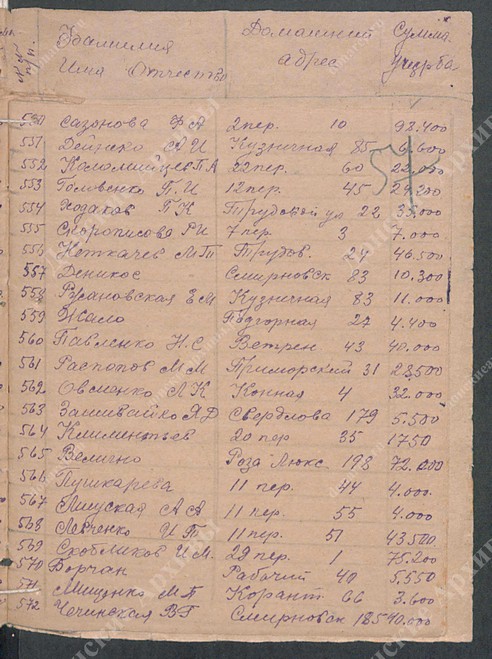 №№ п/п. Фамилия Имя Отчество Домашний адрес Сумма ущерба
550 Сазонова Ф А 2 пер. 10 92.400
551 Дейнеко А И Кузничная 85 6.600
552 Каламийцев П А 22 пер. 60 22.000
553 Головенко П. И 12 пер. 45 24.200
554 Ходаков П К Трудовой ул 22 35.000
555 Скорописова Р И 7 пер. 3 7.000
556 Неткачев М П Трудов. 24 46.500
557 Деникос Смирновск 83 10.300
558 Рузановская Е М Кузничная 83 11.000
559 Шкало Подгорная 27 4.400
560 Павленко Н. С. Ветрен 43 40.000
561 Распопов М М Приморский 31 23.500
562 Овсиенко Л К Конная 4 32.000
563 Зашивайко Я Д Свердлова 179 5.500
564 Климентьев 20 пер 35 1750
565 Величко Роза Люкс. 198 72.000
566 Пушкарева 11 пер. 44 4.000
567 А А 11 пер. 55 4.000
568 Левченко И Г. 11 пер. 51 43.500
569 Скобликов И М. 29 пер. 1 75.200
570 Борчан Рабочий 40 5.550
571 Мищенко М П Корант 66 3.600
572 Чечинская В Г Смирновск 185 40.000